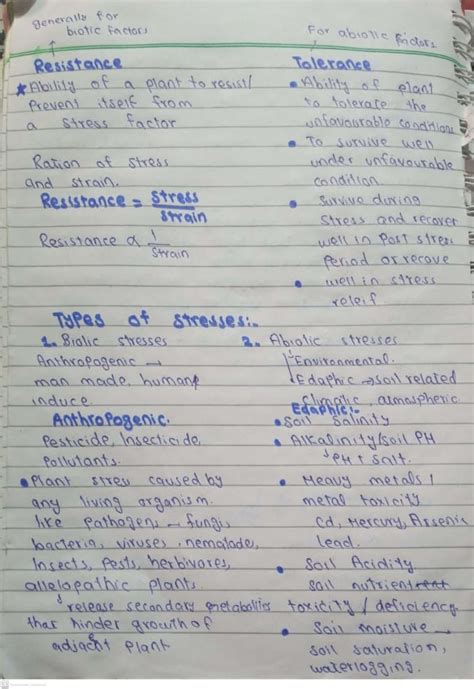 generally for
biotic factors
For abiotic factors
Resistance
Ability of a plant to resist/
Prevent itself from
a stress factor
Ration of stress
and strain.
Resistance = Stress
Strain
Resistance α 1
Strain
Tolerance
• Ability of plant
to tolerate the
unfavourable conditions
• To survive well
under unfavourable
condition
• Survive during
Stress and recover
well in Post stress
Period or recove
• well in stress
releif
Types of stresses:-
1. Biotic stresses
Anthropogenic →
man made, human
induce.
Anthropogenic.
Pesticide, Insecticide,
Pollutants.
• Plant stress caused by
any living organism.
like pathogens - fungi,
bacteria, viruses, nematode,
Insects, Pests, herbivores,
allelopathic plants.
release secondary metabolites
that hinder growth of
adjacent plant
2. Abiotic stresses
Environmental.
Edaphic → soil related
Climatic, atmospheric
Edaphic:-
• Soil Salinity
• Alkalinity/soil PH
PH ↑ salt.
• Heavy metals /
metal toxicity
Cd, Mercury, Arsenic
lead.
• Soil Acidity
Soil nutrient
toxicity / deficiency
• Soil moisture -
soil saturation,
waterlogging.